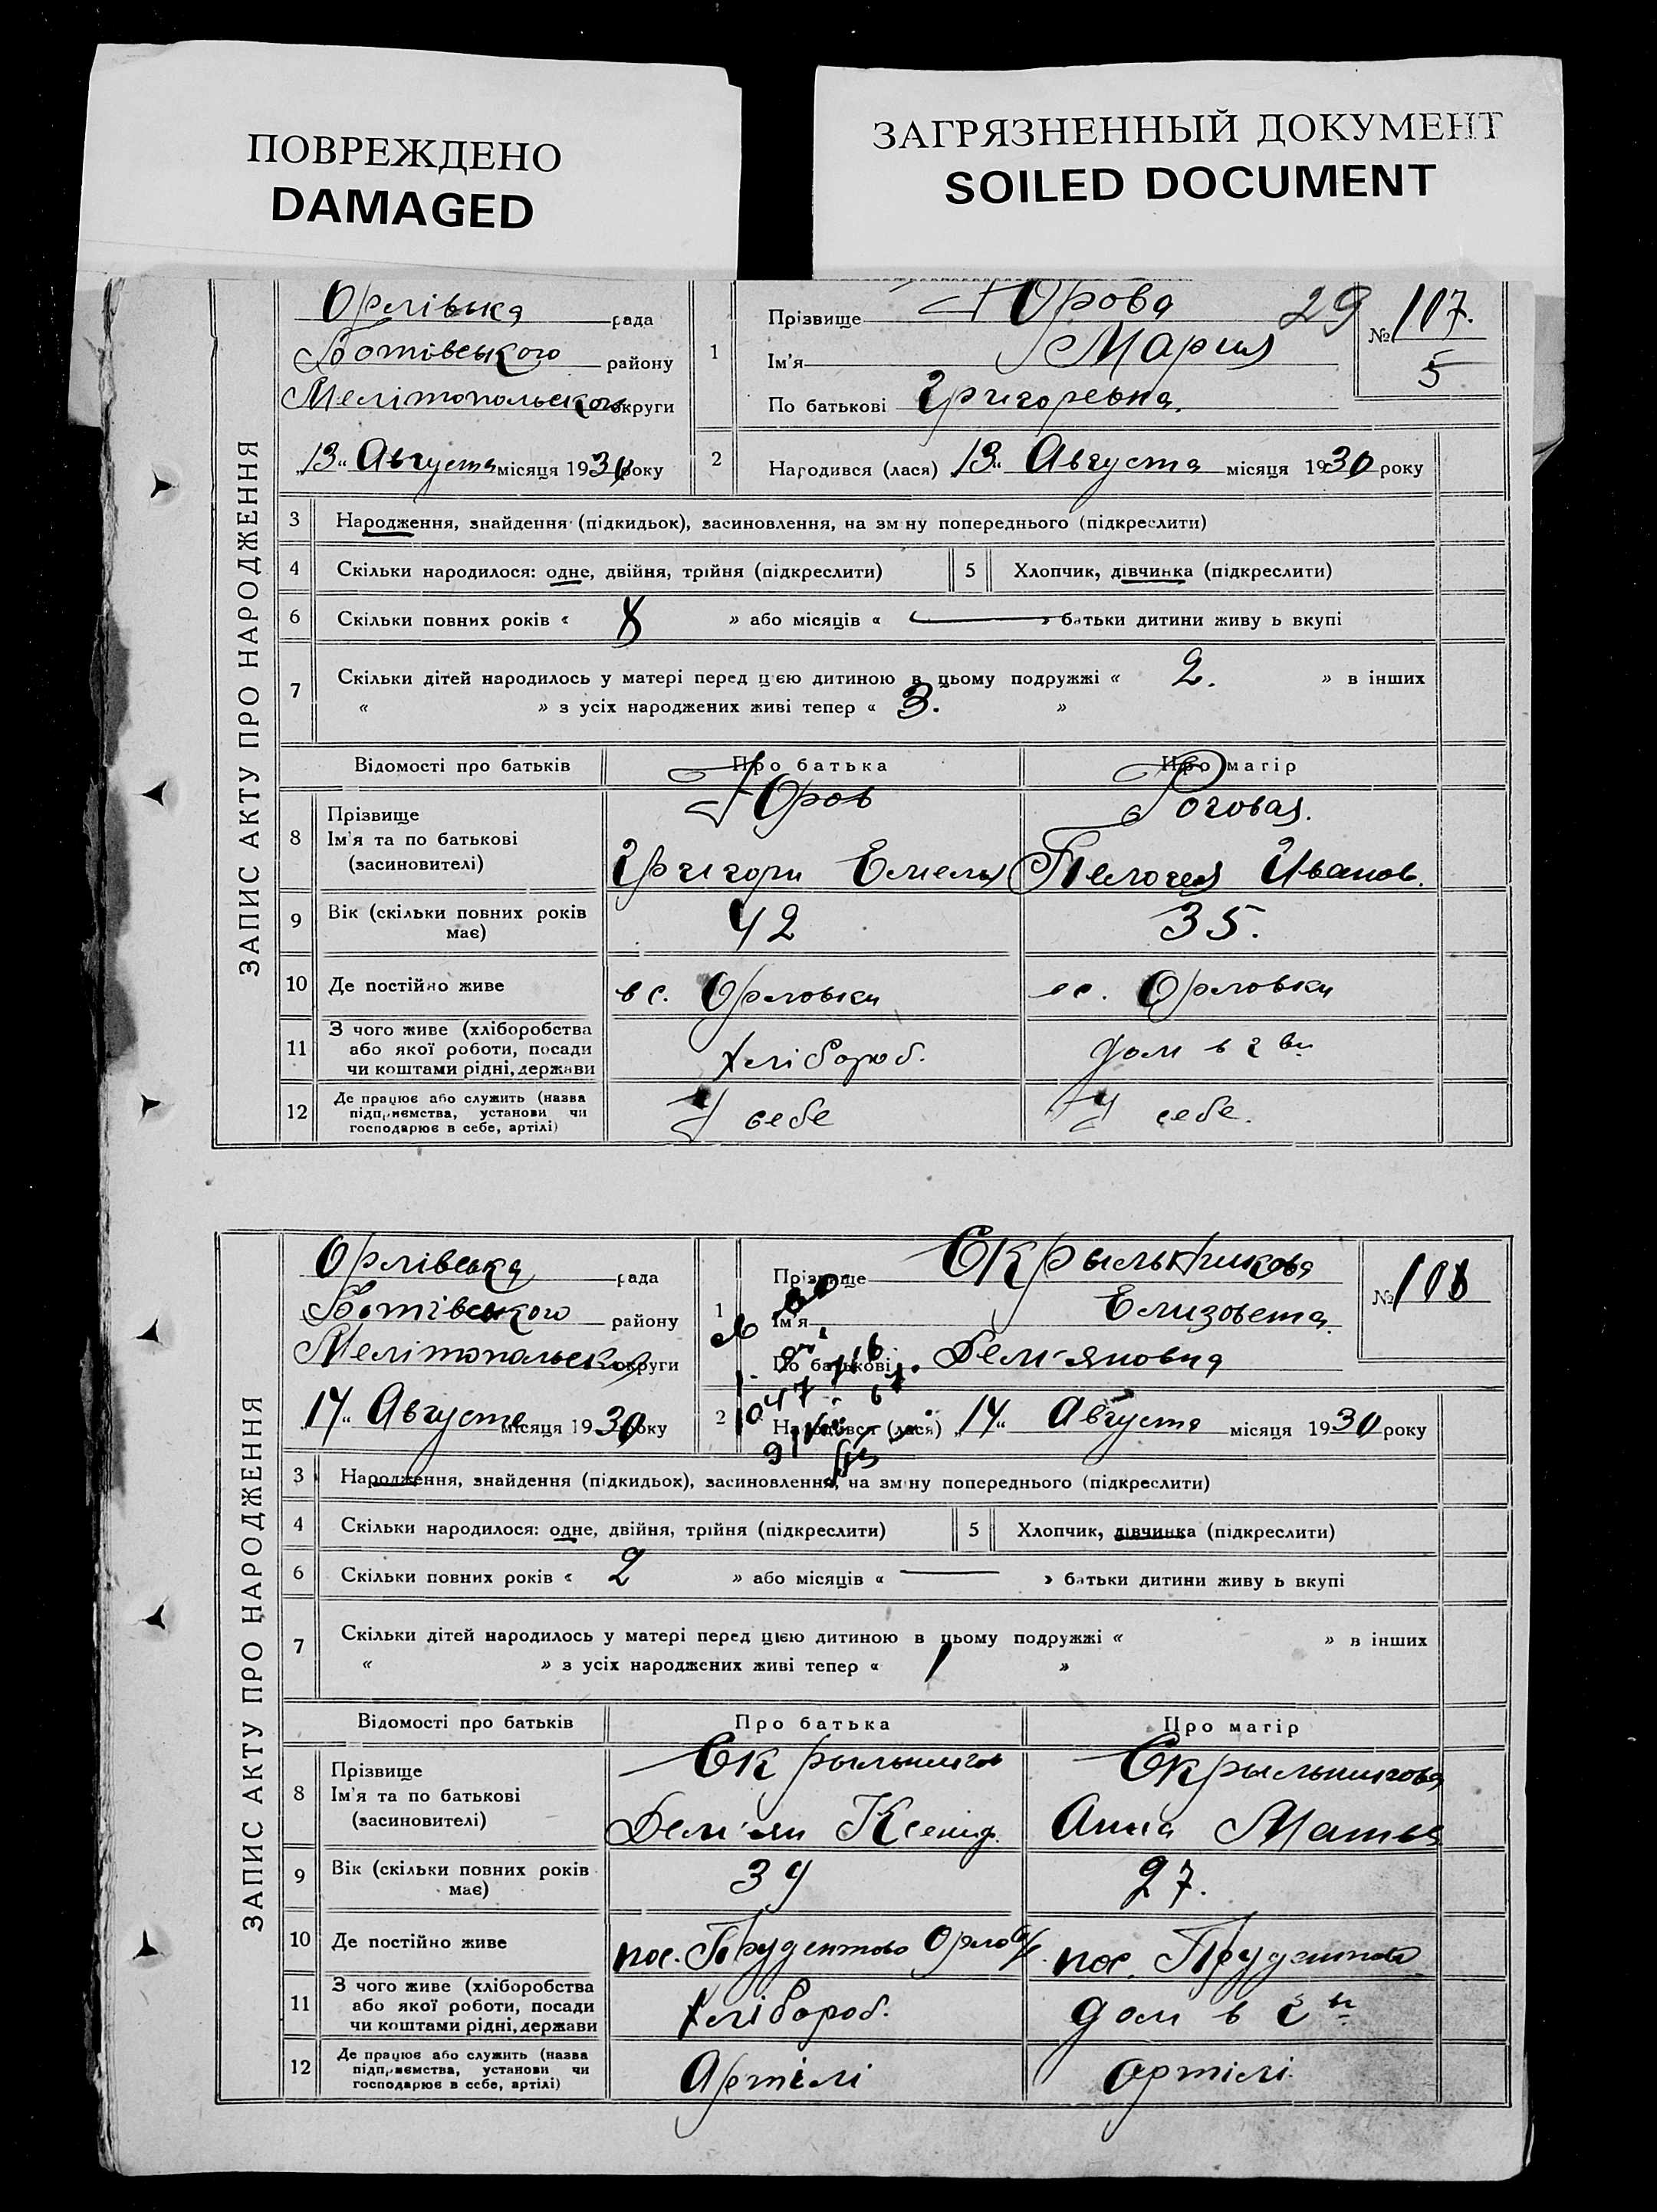 ПОВРЕЖДЕНО
DAMAGED
ЗАГРЯЗНЕННЫЙ ДОКУМЕНТ
SOILED DOCUMENT
ЗАПИС АКТУ ПРО НАРОДЖЕННЯ
Орлівська рада
Ботівського району
Мелітопольского округи
„13“ Августа місяця 1930 року
1
Прізвище Юрова 29
Ім'я Мария
По батькові Григоревна.
№ 107.
5
2 Народився (лася) 13“ Августа місяця 1930 року
3 Народження, знайдення (підкидьок), засиновлення, на зміну попереднього (підкреслити)
4 Скільки народилося: одне, двійня, трійня (підкреслити)
5 Хлопчик, дівчинка (підкреслити)
6 Скільки повних років « 8 » або місяців « — » батьки дитини живуть вкупі
7 Скільки дітей народилось у матері перед цією дитиною в цьому подружжі « 2. » в інших
« » з усіх народжених живі тепер « 3. »
Відомості про батьків Про батька Про матір
8 Прізвище
Ім'я та по батькові
(засиновителі)
Юров
Григори Емелья
Роговая.
Пелогея Иванов.
9 Вік (скільки повних років має) 42 35.
10 Де постійно живе в с. Орловки в с. Орловки
11 З чого живе (хліборобства
або якої роботи, посади
чи коштами рідні, держави
хлібороб. дом в г ви
12 Де працює або служить (назва
підприємства, установи чи
господарює в себе, артілі)
У себе У себе.
ЗАПИС АКТУ ПРО НАРОДЖЕННЯ
Орлівська рада
Ботівського району
Мелітопольська округи
14“ Августа місяця 1930 року
1
Прізвище Скрыльникова
Ім'я Елизовета.
По батькові Дем'яновна
№ 108
2 Народився (лася) „14“ Августа місяця 1930 року
3 Народження, знайдення (підкидьох), засиновлення, на зміну попереднього (підкреслити)
4 Скільки народилося: одне, двійня, трійня (підкреслити)
5 Хлопчик, дівчинка (підкреслити)
6 Скільки повних років « 2 » або місяців « — » батьки дитини живуть вкупі
7 Скільки дітей народилось у матері перед цією дитиною в цьому подружжі « » в інших
« » з усіх народжених живі тепер « 1 »
Відомості про батьків Про батька Про матір
8 Прізвище
Ім'я та по батькові
(засиновителі)
Скрыльников
Дем'ян Ксеноф.
Скрыльникова
Анна Матья
9 Вік (скільки повних років має) 39 27.
10 Де постійно живе пос. пос.
11 З чого живе (хліборобства
або якої роботи, посади
чи коштами рідні, держави
хлібороб. дом в г ви
12 Де працює або служить (назва
підприємства, установи чи
господарює в себе, артілі)
Артілі артілі